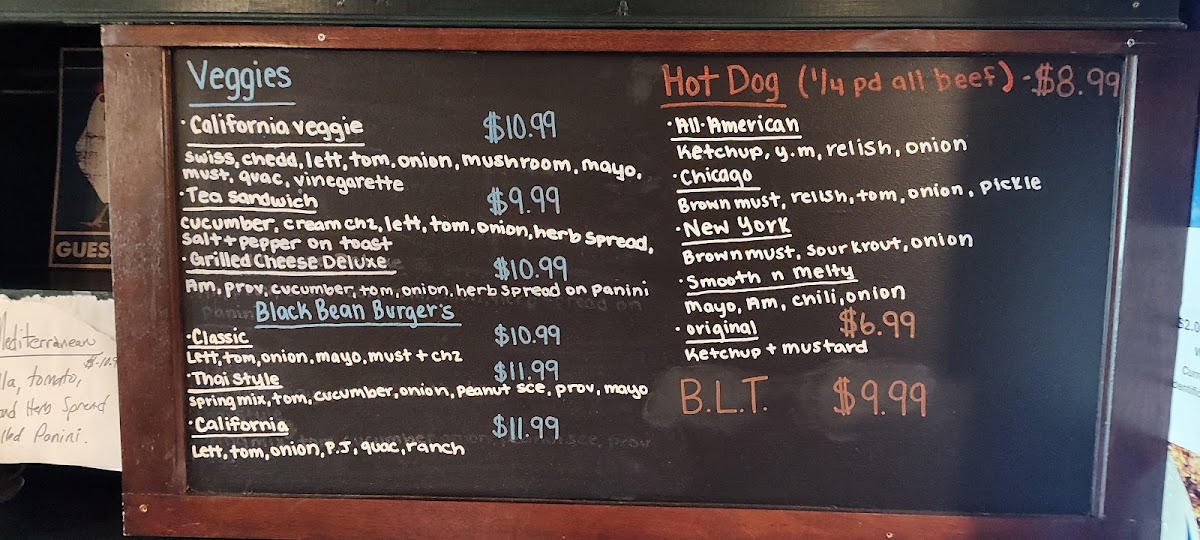 Veggies
· California veggie $10.99
swiss, chedd, lett, tom, onion, mushroom, mayo,
must, quac, vinegarette
· Tea sandwich $9.99
cucumber, cream chz, lett, tom, onion, herb spread,
salt + pepper on toast
· Grilled Cheese Deluxe $10.99
Am, prov, cucumber, tom, onion, herb spread on panini
Black Bean Burger's
· Classic $10.99
Lett, tom, onion, mayo, must + chz
· Thai style $11.99
spring mix, tom, cucumber, onion, peanut sce, prov, mayo
· California $11.99
Lett, tom, onion, P.J, quac, ranch
Hot Dog (1/4 pd all beef) - $8.99
· All-American
Ketchup, y.m, relish, onion
· Chicago
Brown must, relish, tom, onion, pickle
· New York
Brown must, sour krout, onion
· Smooth n melty
Mayo, Am, chili, onion
· original $6.99
Ketchup + mustard
B.L.T. $9.99
GUES
Mediterranean
tomato,
Herb Spread
Panini.